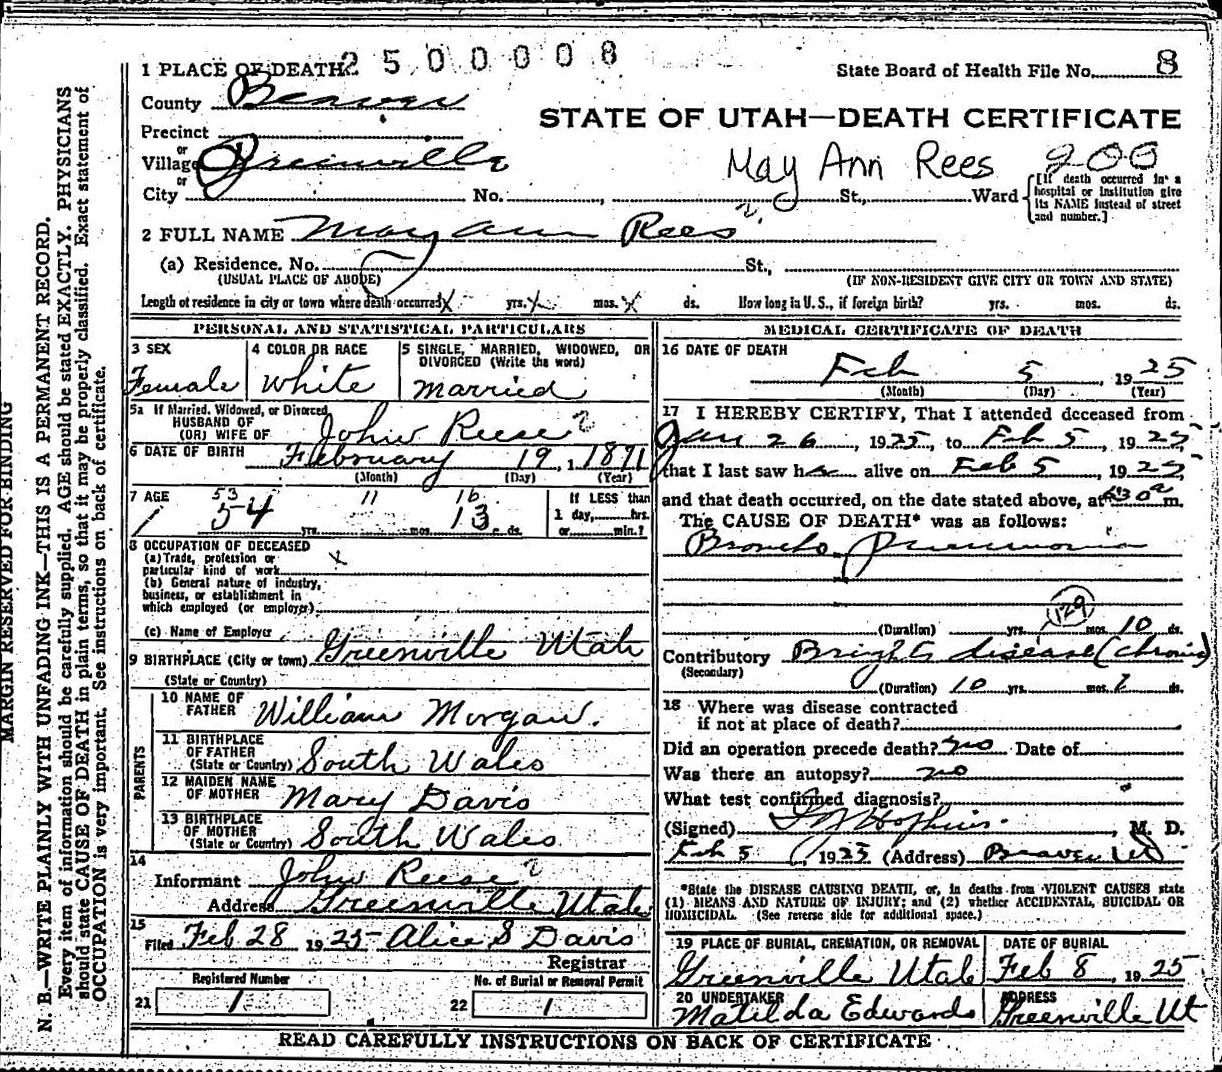 2500008
1 PLACE OF DEATH
State Board of Health File No. 8
County Beaver
STATE OF UTAH—DEATH CERTIFICATE
Precinct
or
Village Greenville
May Ann Rees 900
or
City No. , St., Ward
[If death occurred in a hospital or institution give its NAME instead of street and number.]
2 FULL NAME Mary Ann Rees
(a) Residence. No. St.,
(USUAL PLACE OF ABODE) (IF NON-RESIDENT GIVE CITY OR TOWN AND STATE)
Length of residence in city or town where death occurred X yrs. X mos. X ds. How long in U.S., if foreign birth? yrs. mos. ds.
PERSONAL AND STATISTICAL PARTICULARS
3 SEX Female
4 COLOR OR RACE White
5 SINGLE, MARRIED, WIDOWED, OR DIVORCED (Write the word) Married
5a If Married, Widowed, or Divorced
HUSBAND OF
(OR) WIFE OF John Reese ?
6 DATE OF BIRTH February 19, 1 1871
(Month) (Day) (Year)
7 AGE 53 11 16
54 yrs. mos. 13 ds.
If LESS than
1 day, hrs.
or min.?
8 OCCUPATION OF DECEASED
(a) Trade, profession or
particular kind of work X
(b) General nature of industry,
business, or establishment in
which employed (or employer)
(c) Name of Employer
9 BIRTHPLACE (City or town) Greenville Utah
(State or Country)
PARENTS
10 NAME OF
FATHER William Morgan.
11 BIRTHPLACE
OF FATHER
(State or Country) South Wales
12 MAIDEN NAME
OF MOTHER Mary Davis
13 BIRTHPLACE
OF MOTHER
(State or Country) South Wales
14
Informant John Reese ?
Address Greenville Utah
15
Filed Feb 28 1925 Alice S Davis
Registrar
Registered Number
21 1
No. of Burial or Removal Permit
22 1
MEDICAL CERTIFICATE OF DEATH
16 DATE OF DEATH
Feb 5, 1925
(Month) (Day) (Year)
17 I HEREBY CERTIFY, That I attended deceased from
Jan 26, 1925, to Feb 5, 1925,
that I last saw her alive on Feb 5, 1925,
and that death occurred, on the date stated above, at m.
The CAUSE OF DEATH* was as follows:
Broncho Pneumonia
129
(Duration) yrs. mos. 10 ds.
Contributory Brights disease (chronic)
(Secondary)
(Duration) 10 yrs. mos. ? ds.
18 Where was disease contracted
if not at place of death?
Did an operation precede death? no Date of
Was there an autopsy? no
What test confirmed diagnosis?
(Signed) Hopkins, M. D.
Feb 5, 1925 (Address) Beaver Ut
*State the DISEASE CAUSING DEATH, or, in deaths from VIOLENT CAUSES state
(1) MEANS AND NATURE OF INJURY; and (2) whether ACCIDENTAL, SUICIDAL OR
HOMICIDAL. (See reverse side for additional space.)
19 PLACE OF BURIAL, CREMATION, OR REMOVAL Greenville Utah
DATE OF BURIAL Feb 8 1925
20 UNDERTAKER Matilda Edwards
ADDRESS Greenville Ut
READ CAREFULLY INSTRUCTIONS ON BACK OF CERTIFICATE
MARGIN RESERVED FOR BINDING
N. B.—WRITE PLAINLY WITH UNFADING INK—THIS IS A PERMANENT RECORD.
Every item of information should be carefully supplied. AGE should be stated EXACTLY. PHYSICIANS
should state CAUSE OF DEATH in plain terms, so that it may be properly classified. Exact statement of
OCCUPATION is very important. See instructions on back of certificate.